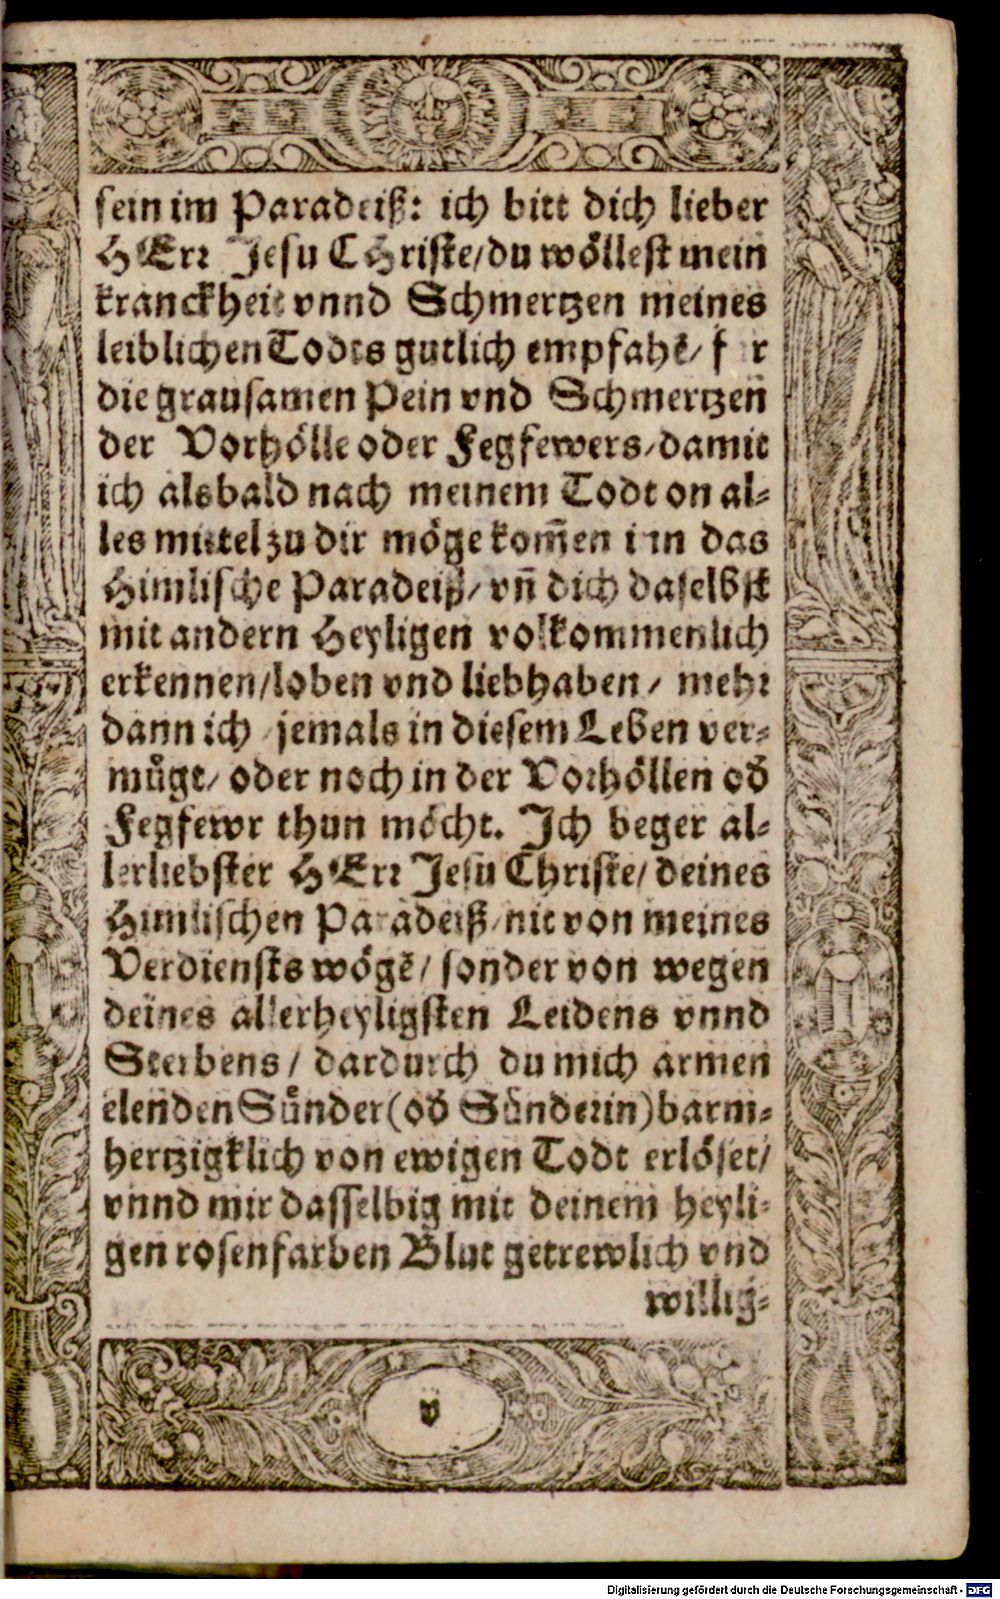 sein im Paradeiß: ich bitt dich lieber
HErr Jesu CHriste/du wöllest mein
kranckheit vnnd Schmertzen meines
leiblichen Todts gutlich empfahẽ/ für
die grausamen Pein vnd Schmertzen
der Vorhölle oder Fegfewers/damit
ich alsbald nach meinem Todt on al-
les mittel zu dir möge kom̃en inn das
Himlische Paradeiß/ vñ dich daselbst
mit andern Heyligen volkommenlich
erkennen/loben vnd liebhaben/ mehr
dann ich jemals in diesem Leben ver-
müge/ oder noch in der Vorhöllen oď
Fegfewr thun möcht. Ich beger al-
lerliebster HErr Jesu Christe/ deines
Himlischen Paradeiß/nit von meines
Verdiensts wögẽ/ sonder von wegen
deines allerheyligsten Leidens vnnd
Sterbens/ dardurch du mich armen
elenden Sünder(oď Sünderin)barm-
hertzigklich von ewigen Todt erlöset/
vnnd mir dasselbig mit deinem heyli-
gen rosenfarben Blut getrewlich vnd
willig-
v
Digitalisierung gefördert durch die Deutsche Forschungsgemeinschaft - DFG